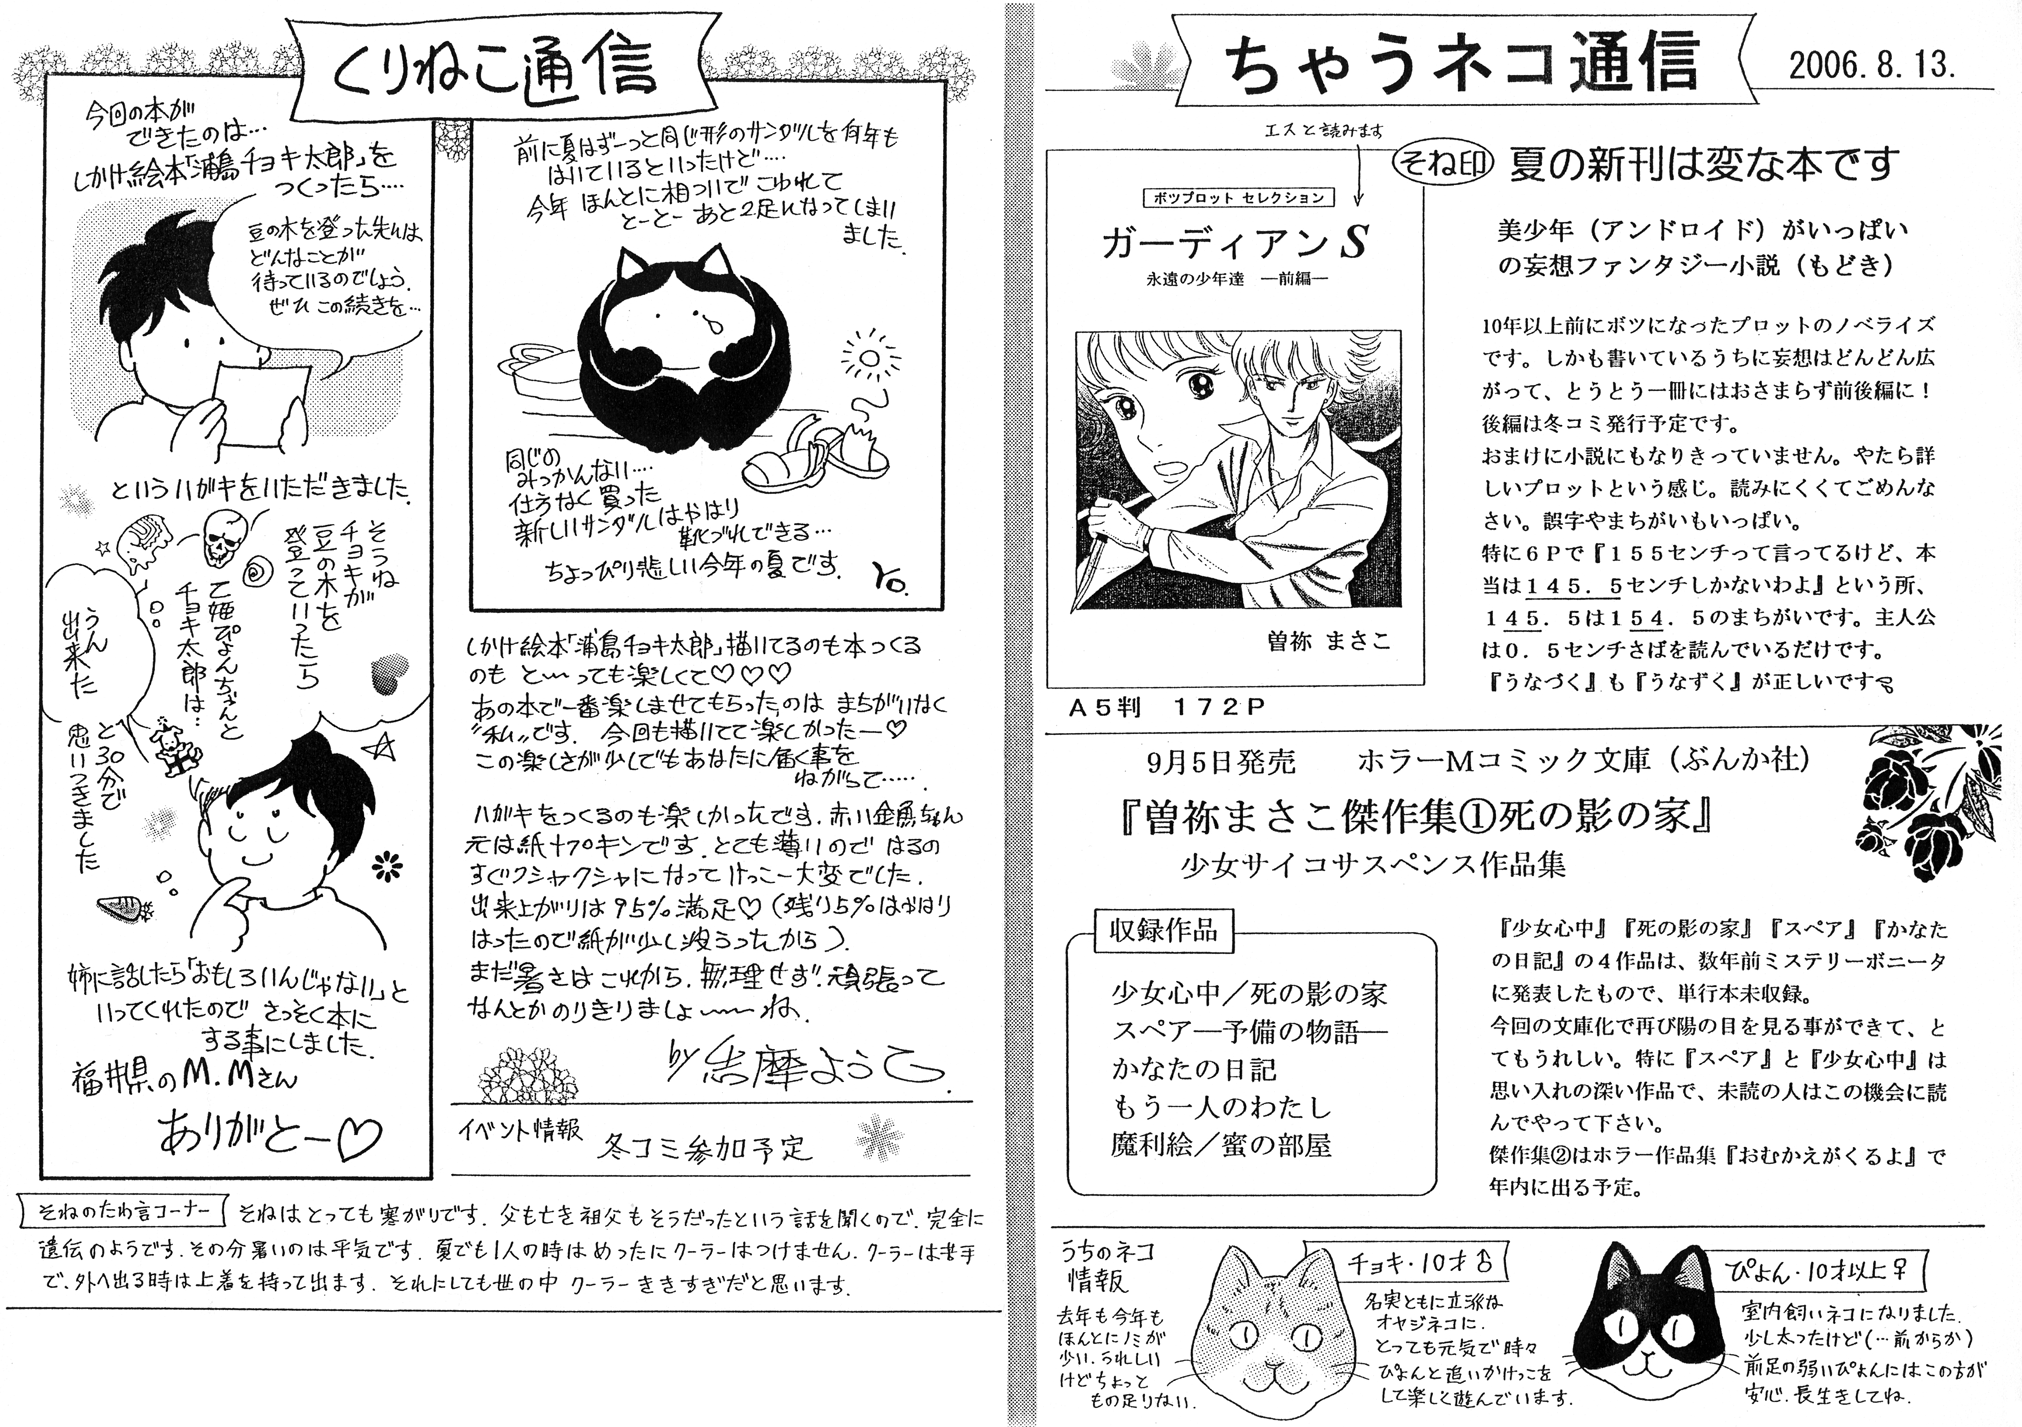 くりねこ通信
今回の本が
できたのは…
しかけ絵本「浦島チョキ太郎」を
つくったら….
豆の木を登った先には、
どんなことが
待っているのでしょう.
ぜひこの続きを…
というハガキをいただきました.
そうね
チョキが
豆の木を
登っていったら
乙姫ぴょんちゃんと
チョキ太郎は…
うん
出来た
と30分で
思いつきました
姉に話したら「おもしろいんじゃない」と
いってくれたので さっそく本に
する事にしました.
福井県のM.Mさん
ありがとー♡
前に夏はずーっと同じ形のサンダルを何年も
はいているといったけど….
今年 ほんとに相ついで こわれて
とーとー あと2足になってしまい
ました.
同じの
みつかんない….
仕方なく買った
新しいサンダルはやはり
靴づれできる…
ちょっぴり悲しい今年の夏です.
Yo.
しかけ絵本「浦島チョキ太郎」描いてるのも本つくる
のも と〜っても楽しくて♡♡♡
あの本で一番楽しませてもらったのは まちがいなく
〝私〟です. 今回も描いてて楽しかったー♡
この楽しさが少しでもあなたに届く事を
ねがって…..
ハガキをつくるのも楽しかったです.赤い金魚ちゃん
元は紙ナプキンです.とても薄いので はるの
すぐクシャクシャになって けっこー大変でした.
出来上がりは95%満足♡(残り5%はやはり
はったので紙が少し波うったから).
まだ暑さはこれから.無理せず.頑張って
なんとかのりきりましょ〜〜ね.
by 志摩ようこ.
イベント情報
冬コミ参加予定
そねのたわ言コーナー
そねはとっても寒がりです.父も亡き祖父もそうだったという話を聞くので、完全に
遺伝のようです.その分暑いのは平気です.夏でも1人の時はめったにクーラーはつけません.クーラーは苦手
で、外へ出る時は上着を持って出ます.それにしても世の中 クーラーききすぎだと思います.
ちゃうネコ通信
2006.8.13.
エスと読みます
ボツプロット セレクション
ガーディアンS
永遠の少年達 ―前編―
曽祢 まさこ
A5判 172P
そね印
夏の新刊は変な本です
美少年（アンドロイド）がいっぱい
の妄想ファンタジー小説（もどき）
10年以上前にボツになったプロットのノベライズ
です。しかも書いているうちに妄想はどんどん広
がって、とうとう一冊にはおさまらず前後編に！
後編は冬コミ発行予定です。
おまけに小説にもなりきっていません。やたら詳
しいプロットという感じ。読みにくくてごめんな
さい。誤字やまちがいもいっぱい。
特に6Pで『155センチって言ってるけど、本
当は145．5センチしかないわよ』という所、
145．5は154．5のまちがいです。主人公
は0．5センチさばを読んでいるだけです。
『うなづく』も『うなずく』が正しいです
9月5日発売 ホラーMコミック文庫（ぶんか社）
『曽祢まさこ傑作集①死の影の家』
少女サイコサスペンス作品集
収録作品
少女心中／死の影の家
スペア―予備の物語―
かなたの日記
もう一人のわたし
魔利絵／蜜の部屋
『少女心中』『死の影の家』『スペア』『かなた
の日記』の4作品は、数年前ミステリーボニータ
に発表したもので、単行本未収録。
今回の文庫化で再び陽の目を見る事ができて、と
てもうれしい。特に『スペア』と『少女心中』は
思い入れの深い作品で、未読の人はこの機会に読
んでやって下さい。
傑作集②はホラー作品集『おむかえがくるよ』で
年内に出る予定。
うちのネコ
情報
去年も今年も
ほんとにノミが
少い.うれしい
けどちょっと
もの足りない.
チョキ・10才♂
名実ともに立派な
オヤジネコに.
とっても元気で時々
ぴょんと追いかけっこを
して楽しく遊んでいます.
ぴょん・10才以上♀
室内飼いネコになりました.
少し太ったけど(…前からか)
前足の弱いぴょんにはこの方が
安心.長生きしてね.